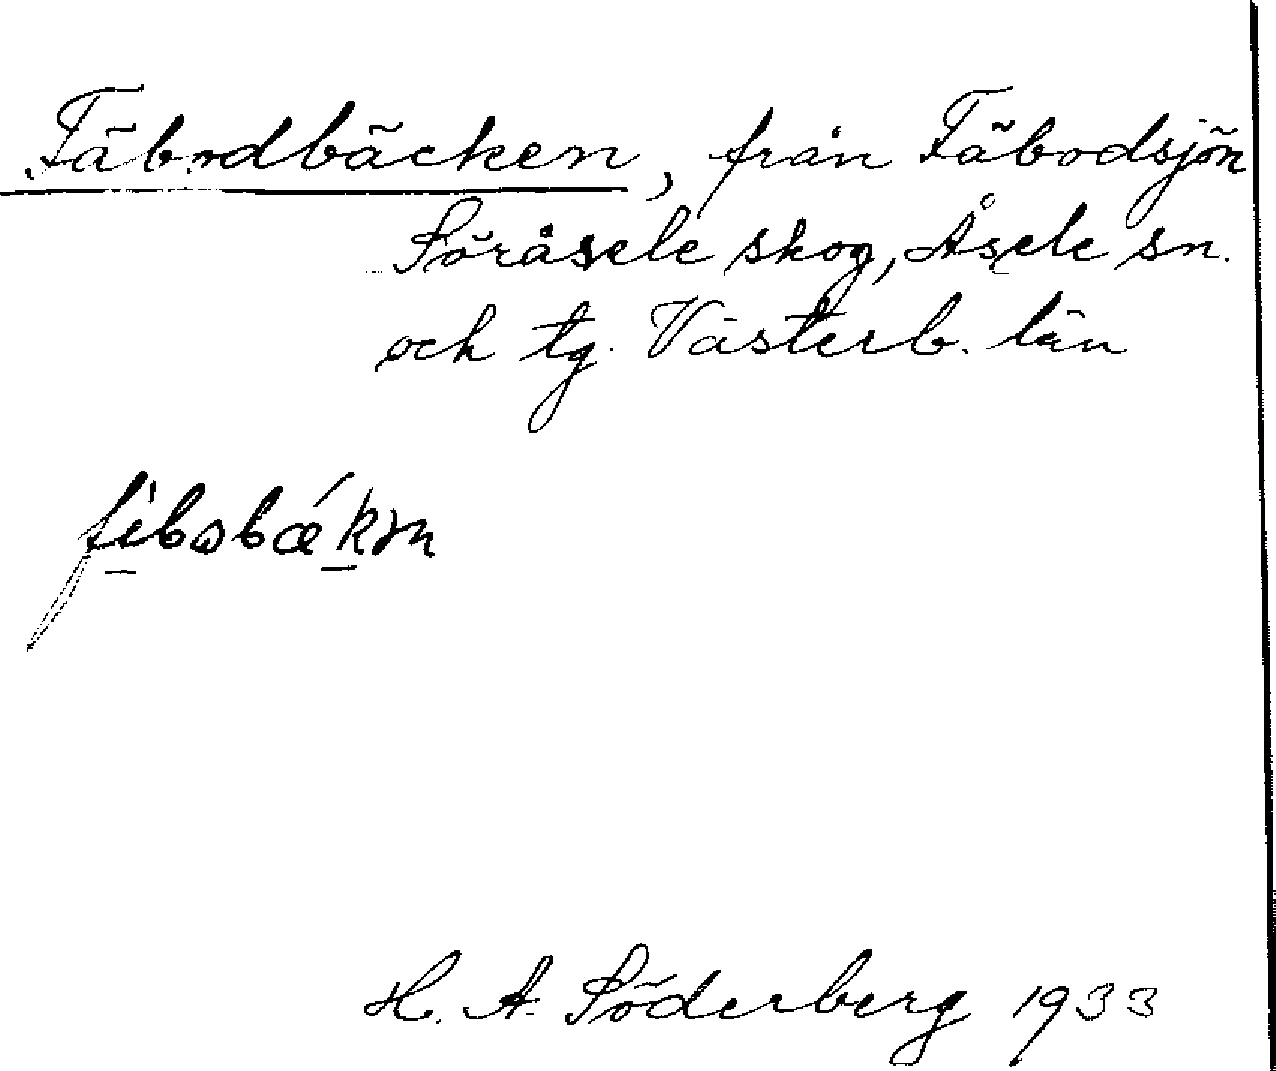 Fäbodbäcken, från Fäbodsjön
Söråsele skog, Åsele sn.
och tg. Västerb. län
H. A. Söderberg 1933